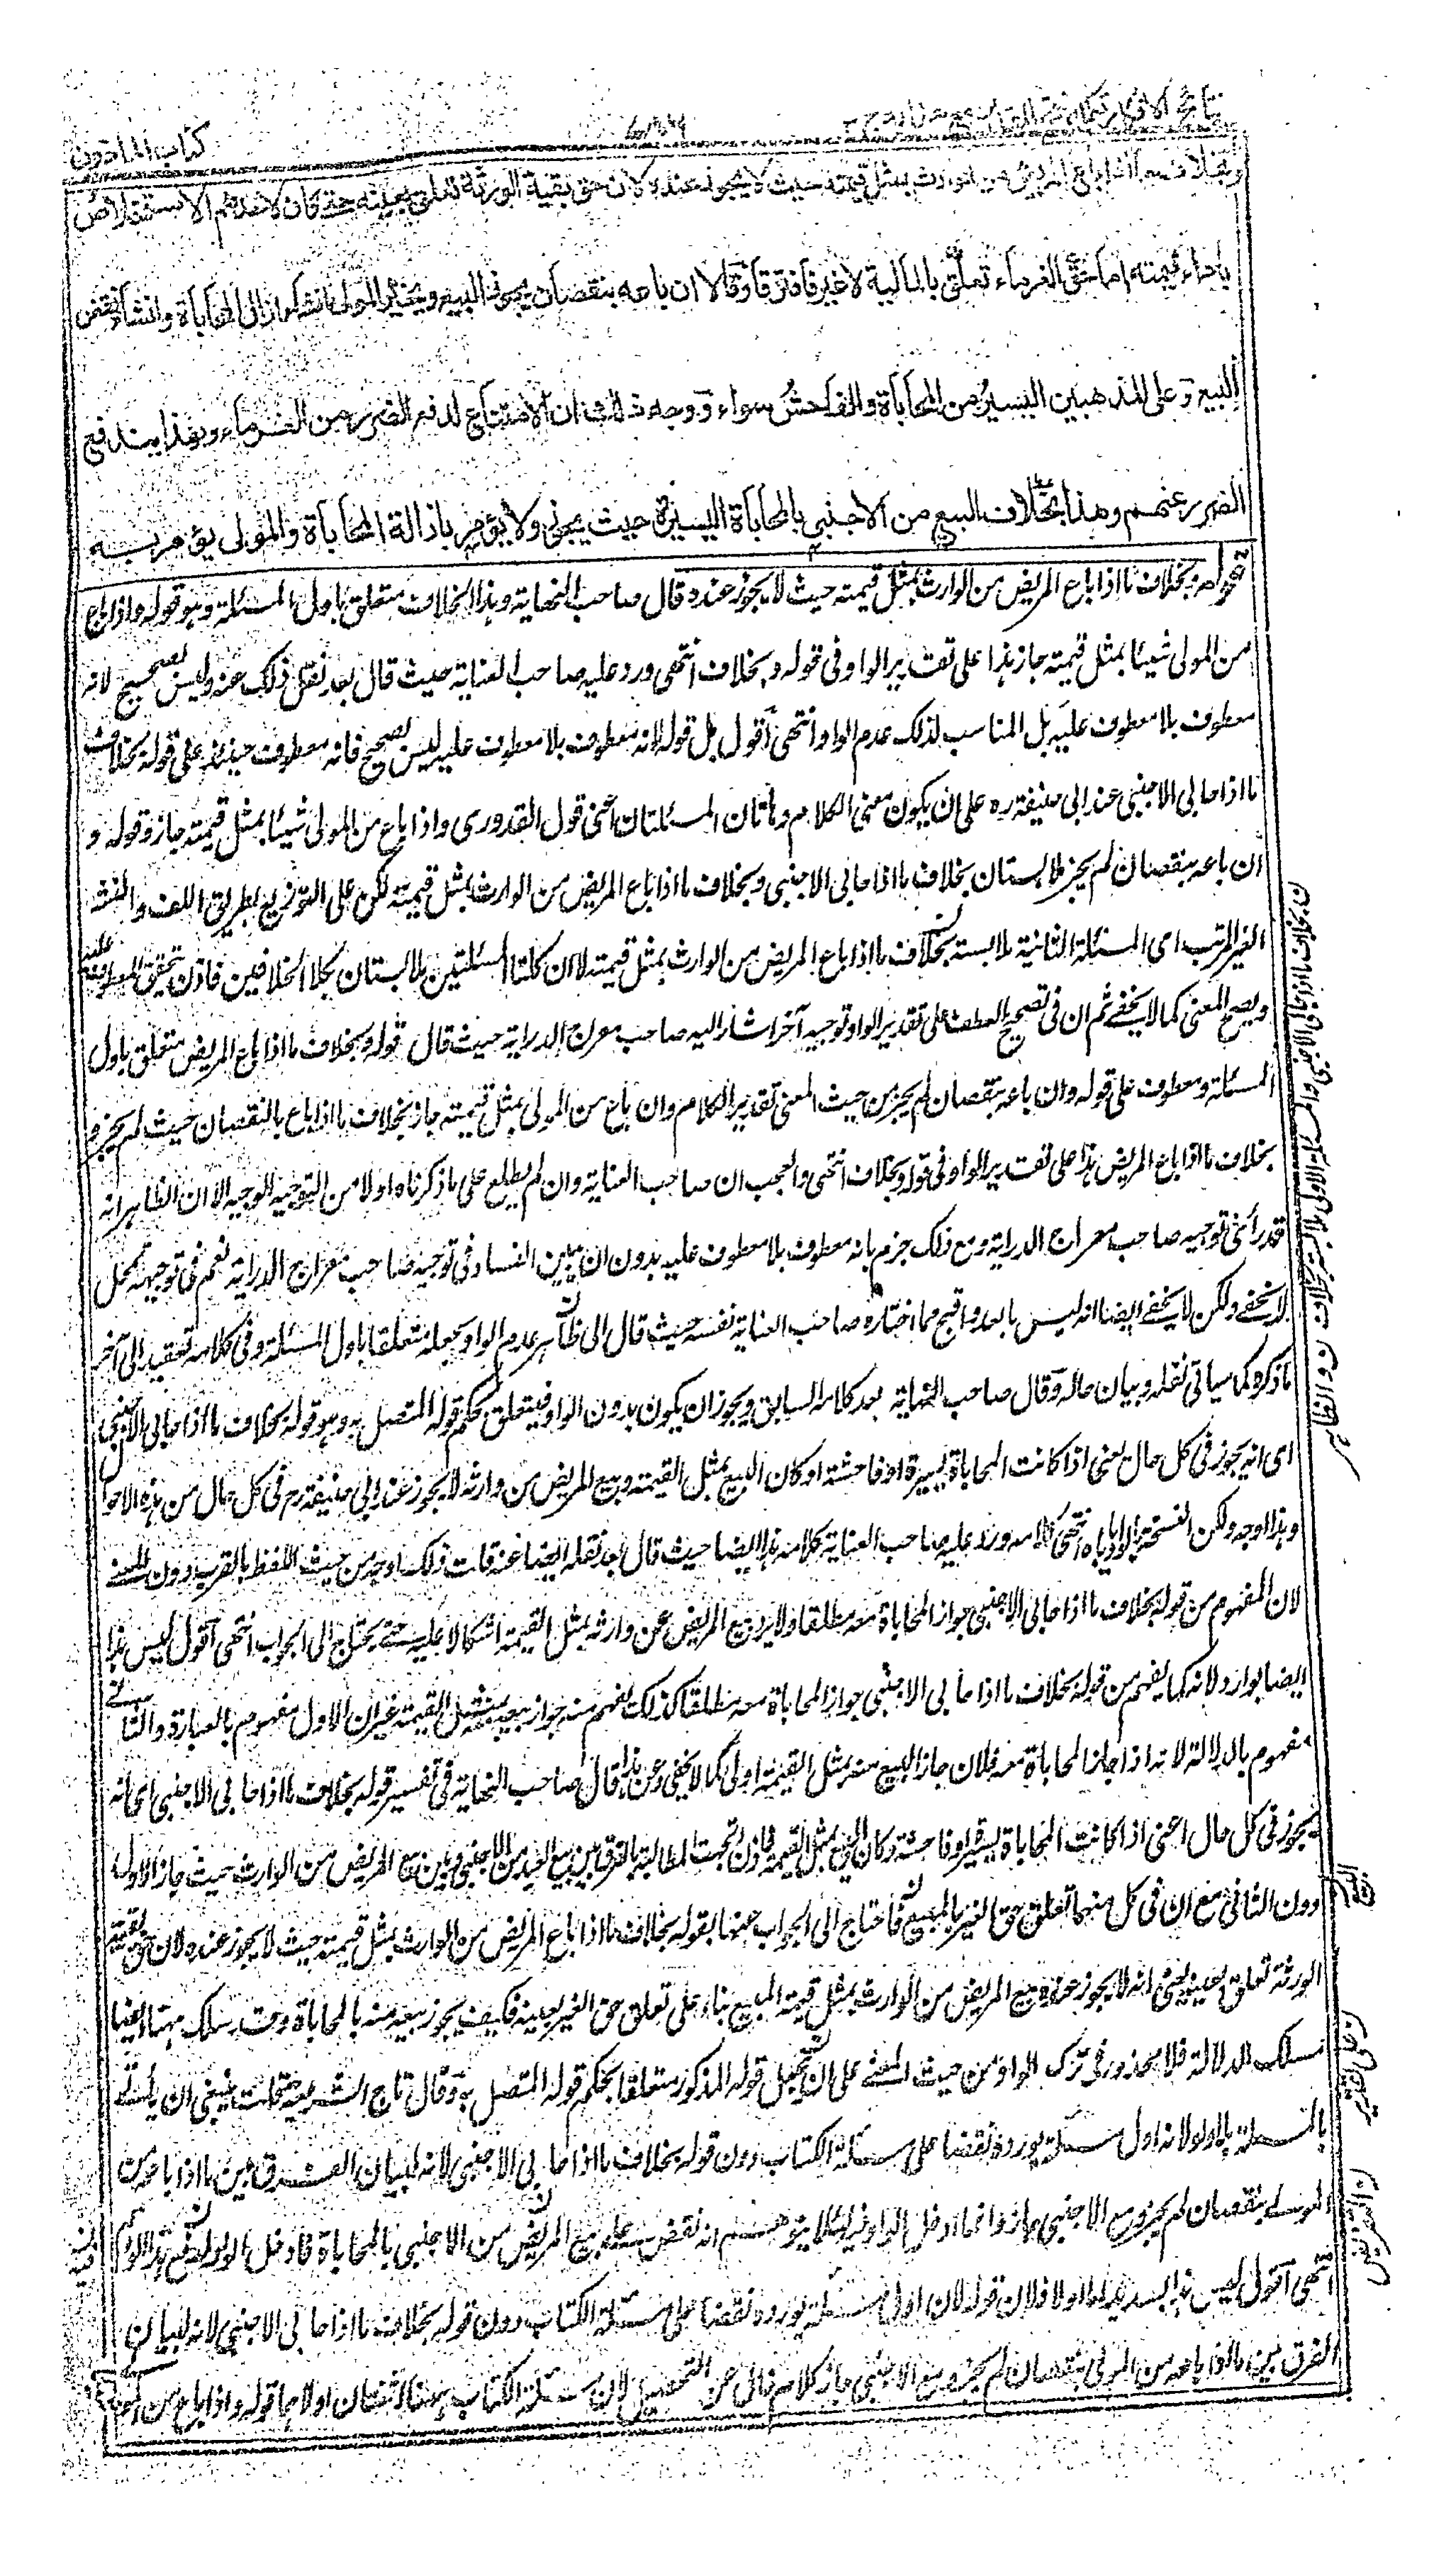 كتاب المأذون
وبخلاف ما اذا باع المريض من الوارث بمثل قيمته حيث لا يجوز عنده لان حق بقية الورثة تعلق بعينه حتى كان لاحدهم الاستخلاص
باداء قيمته اما حق الغرماء تعلق بالمالية لا غير فافترقا وقالا ان باعه بنقصان يجوز البيع ويخير المولى ان شاء ازال المحاباة وان شاء نقض
البيع وعلى المذهبين اليسير من المحاباة والفاحش سواء ووجه ذلك ان الامتناع لدفع الضرر من الغرماء وبهذا يندفع
الضرر عنهم وهذا بخلاف البيع من الاجنبي بالمحاباة اليسيرة حيث يجوز ولا يؤمر بازالة المحاباة والمولى يؤمر به
قوله وبخلاف ما اذا باع المريض من الوارث بمثل قيمته حيث لا يجوز عنده قال صاحب النهاية وهذا الخلاف متعلق باول المسئلة وهو قوله واذا باع
من المولى شيئا بمثل قيمته جاز هذا على تقدير الواو فى قوله وبخلاف انتهى ورد عليه صاحب العناية حيث قال بعد نقل ذلك عنه وليس بصحيح لانه
معطوف بلا معطوف عليه بل المناسب لذلك عدم الواو انتهى أقول بل قوله لانه معطوف بلا معطوف عليه ليس بصحيح فانه معطوف حينئذ على قوله بخلاف
ما اذا حابى الاجنبى عند ابى حنيفة ره على ان يكون معنى الكلام وهاتان المسئلتان اعنى قول القدورى واذا باع من المولى شيئا بمثل قيمته جاز وقوله و
ان باعه بنقصان لم يجز ملابستان بخلاف ما اذا حابى الاجنبى وبخلاف ما اذا باع المريض من الوارث بمثل قيمته لكن على التوزيع بطريق اللف والنشر
الغير المرتب اى المسئلة الثانية ملابسة بخلاف ما اذا باع المريض من الوارث بمثل قيمته لا ان كلتا المسئلتين ملابستان بكلا الخلافين فاذن تحقق المعطوف عليه
ويصح المعنى كما لا يخفى ثم ان فى تصحيح العطف على تقدير الواو توجيه آخر اشار اليه صاحب معراج الدراية حيث قال قوله وبخلاف ما اذا باع المريض متعلق باول
المسئلة ومعطوف على قوله وان باعه بنقصان لم يجز من حيث المعنى تقدير الكلام وان باع من المولى بمثل قيمته جاز بخلاف ما اذا باع بالنقصان حيث لم يجز و
بخلاف ما اذا باع المريض هذا على تقدير الواو فى قوله وبخلاف انتهى والعجب ان صاحب العناية وان لم يطلع على ما ذكرناه اولا من التوجيه الوجيه الا ان الظاهر انه
قد رأى توجيه صاحب معراج الدراية ومع ذلك جزم بانه معطوف بلا معطوف عليه بدون ان يبين الفساد فى توجيه صاحب معراج الدراية نعم فى توجيهه تمحل
لا يخفى ولكن لا يخفى ايضا انه ليس بابعد واقبح مما اختاره صاحب العناية نفسه حيث قال الى ظاهر عدم الواو بجعله متعلقا باول المسئلة وفى كلامه تعقيد الى آخر
ما ذكره كما سياتى نقله وبيان حاله وقال صاحب النهاية بعد كلامه السابق ويجوز ان يكون بدون الواو فيتعلق بحكم قوله المتصل به وهو قوله بخلاف ما اذا حابى الاجنبى
اى انه يجوز فى كل حال يعنى اذا كانت المحاباة يسيرة او فاحشة او كان البيع بمثل القيمة وبيع المريض من وارثه لا يجوز عند ابى حنيفة رح فى كل حال من هذه الاحوال
وهذا اوجه ولكن النسخة بالواو تاباه انتهى كلامه ورد عليه صاحب العناية كلامه هذا ايضا حيث قال بعد نقله ايضا عنه قلت ذلك اوجه من حيث اللفظ بالقرب دون المعنى
لان المفهوم من قوله بخلاف ما اذا حابى الاجنبى جواز المحاباة معه مطلقا ولا يرد بيع المريض عن وارثه بمثل القيمة اشكالا عليه حتى يحتاج الى الجواب انتهى أقول ليس هذا
ايضا بوارد لانه كما يفهم من قوله بخلاف ما اذا حابى الاجنبى جواز المحاباة معه مطلقا كذلك يفهم منه جواز بيعه بمثل القيمة غير ان الاول مفهوم بالعبارة والثانى
مفهوم بالدلالة لانه اذا جاز المحاباة معه فلان جاز البيع منه بمثل القيمة اولى كما لا يخفى وعن هذا قال صاحب النهاية فى تفسير قوله بخلاف ما اذا حابى الاجنبى اى انه
يجوز فى كل حال اعنى اذا كانت المحاباة يسيرة او فاحشة وكان البيع بمثل القيمة فاذن اتجهت المطالبة بالفرق بين بيع العبد من الاجنبى وبين بيع المريض من الوارث حيث جاز الاول
دون الثانى مع ان فى كل منهما تعلق حق الغير بالمبيع فاحتاج الى الجواب عنها بقوله بخلاف ما اذا باع المريض من الوارث بمثل قيمته حيث لا يجوز عنده لان حق بقية
الورثة تعلق بعينه يعنى انه لا يجوز عنده بيع المريض من الوارث بمثل قيمة المبيع بناء على تعلق حق الغير بعينه فكيف يجوز بيعه منه بالمحاباة وقد سلك ههنا ايضا
مسلك الدلالة فلا محذور فى ترك الواو من حيث المعنى على ان يجعل قوله المذكور متعلقا بحكم قوله المتصل به وقال تاج الشريعة قلت ينبغى ان يأتى
بالمسئلة بلا واو لانه اول مسئلة يورده نقضا على مسئلة الكتاب دون قوله بخلاف ما اذا حابى الاجنبى لانه لبيان الفرق بين ما اذا باعه من
المولى بنقصان لم يجز وبيع الاجنبى جاز وانما ادخل الواو فيه لئلا يتوهم انه نقض بيع المريض من الاجنبى بالمحاباة فادخل الواو
انتهى أقول ليس هذا بسديد اما اولا فلان قوله لان اول مسئلة يورده نقضا على مسئلة الكتاب دون قوله بخلاف ما اذا حابى الاجنبى لانه لبيان
الفرق بين ما اذا باعه من المولى بنقصان لم يجز وبيع الاجنبى جاز كلام خال عن التحصيل لان مسئلة الكتاب ههنا ثنتان اولاهما قوله واذا باع من المولى